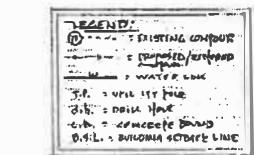 LEGEND:
= EXISTING CONTOUR
= PROPOSED/
= WATER LINE
= UTILITY POLE
D.H. = DRILL HOLE
C.B. = CONCRETE BOUND
B.S.L. = BUILDING SETBACK LINE